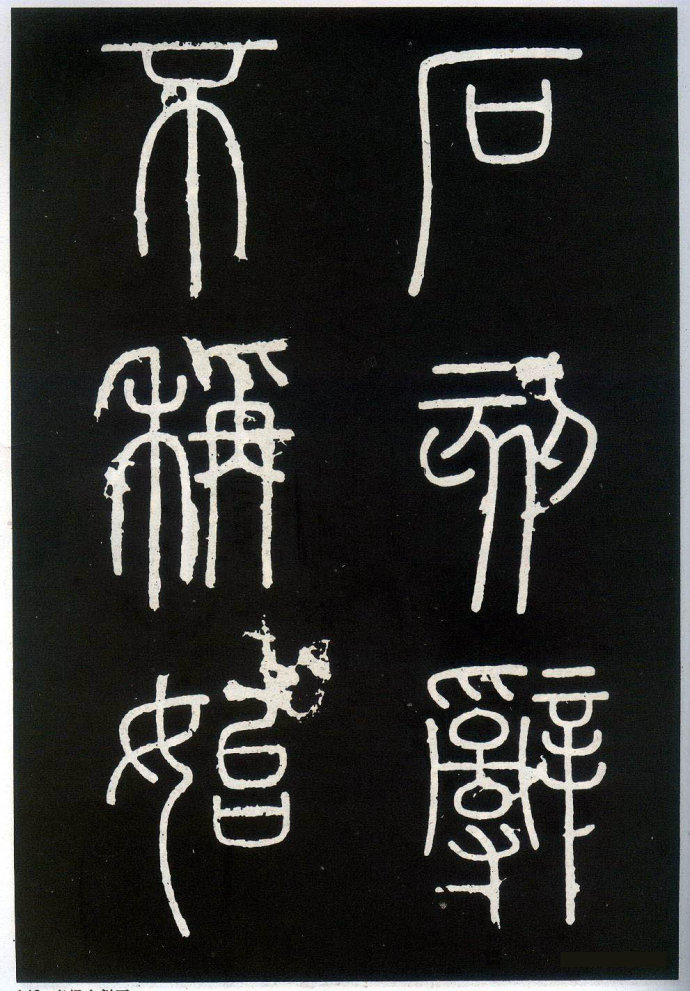 石刻辭
不稱始